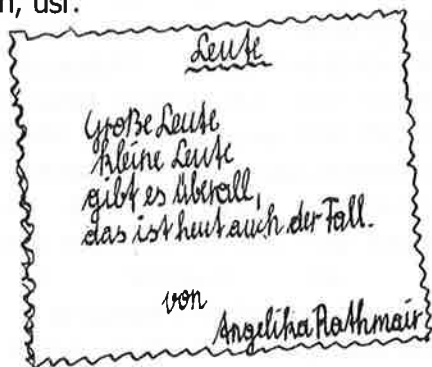 n, usf.
Leute
Große Leute
kleine Leute
gibt es überall,
das ist heut auch der Fall.
von
Angelika Rathmair